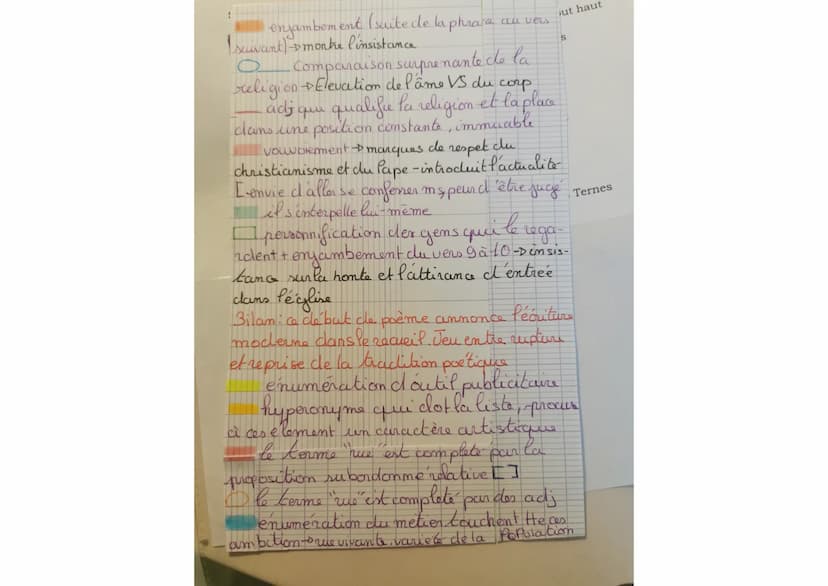 out haut
s
enjambement (suite de la phrase au vers
suivant) → montre l'insistance
Comparaison surprenante de la
religion → Elevation de l'âme VS du corp
adj qui qualifie la religion et la place
dans une position constante, immuable
vouvoiement → marques de respet du
christianisme et du Pape - introduit l'actualité
[-envie d'aller se confesser ms peur d'être jugé
Ternes
il s'interpelle lui-même
personnification des gens qui le rega-
rdent + enjambement du vers 9 à 10 → insis-
tance sur la honte et l'attirance d'entrée
dans l'église
Bilan : ce début de poème annonce l'écriture
moderne dans le recueil. Jeu entre rupture
et reprise de la tradition poétiques
énumération d'outil publicitaire
hyperonyme qui clot la liste, -procure
à ces élement un caractère artistique
le terme "rue" est complété par la
proposition subordonné relative [ ]
le terme "rue" est complété par des adj
énumération du metier touchent tte ces
ambition → rue vivante, variété de la Population